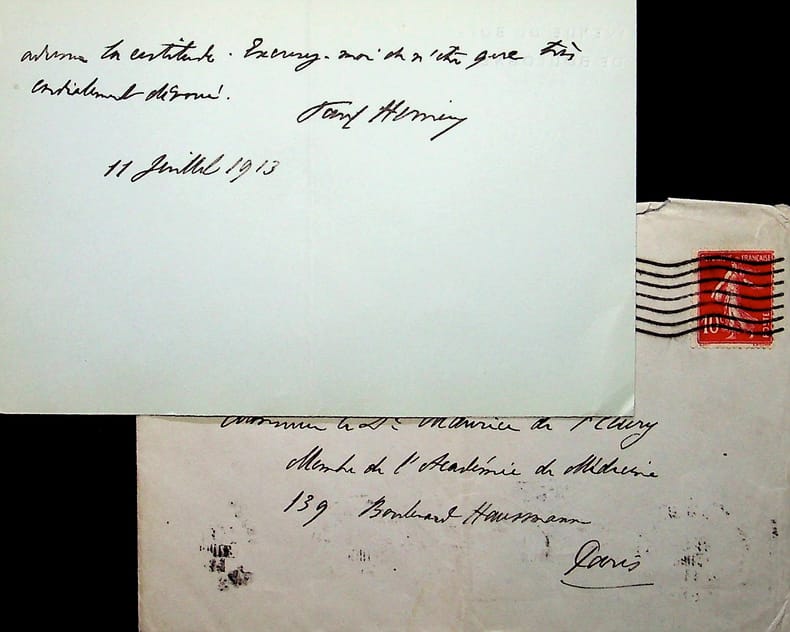 la certitude. Excusez-moi de n'être que très
cordialement dévoué.
Paul Hervieu
11 Juillet 1913
10
POSTE
FRANÇAISE
Monsieur le Dr Maurice de Fleury
Membre de l'Académie de Médecine
139 Boulevard Haussmann
Paris